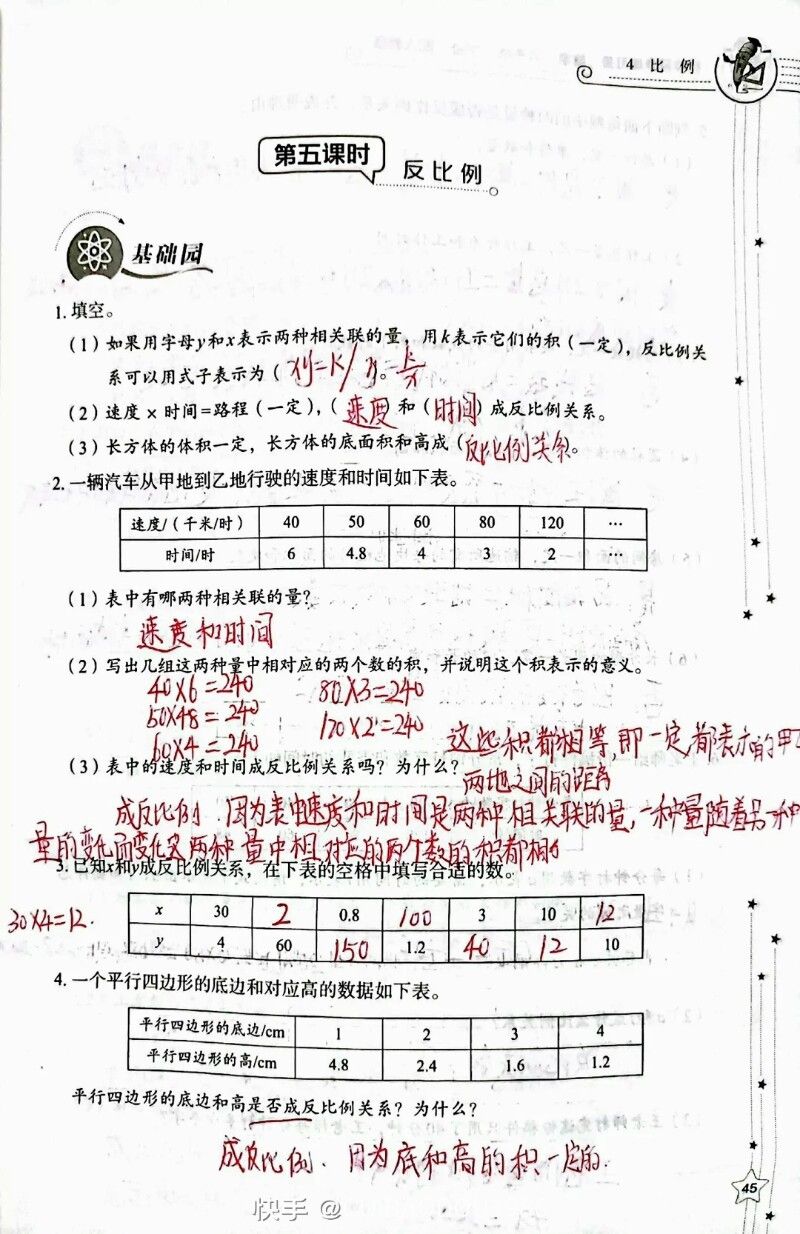 4 比例
第五课时
反比例
基础园
1. 填空。
(1) 如果用字母y和x表示两种相关联的量，用k表示它们的积（一定），反比例关
系可以用式子表示为（ xy=k/ y=k/x
(2) 速度 × 时间=路程（一定），（ 速度 和（时间）成反比例关系。
(3) 长方体的体积一定，长方体的底面积和高成（反比例关系。
2. 一辆汽车从甲地到乙地行驶的速度和时间如下表。
速度/（千米/时） 40 50 60 80 120 …
时间/时 6 4.8 4 3 2 …
(1) 表中有哪两种相关联的量？
速度和时间
(2) 写出几组这两种量中相对应的两个数的积，并说明这个积表示的意义。
40×6=240 80×3=240
50×48=240 120×2=240
60×4=240 这些积都相等,即一定,都表示的甲乙
(3) 表中的速度和时间成反比例关系吗？为什么？ 两地之间的距离
成反比例. 因为表中速度和时间是两种相关联的量,一种量随着另一种
量的变化而变化 两种量中相对应的两个数的积都相
3. 已知x和y成反比例关系，在下表的空格中填写合适的数。
30×4=12.
x 30 2 0.8 100 3 10 12
y 4 60 150 1.2 40 12 10
4. 一个平行四边形的底边和对应高的数据如下表。
平行四边形的底边/cm 1 2 3 4
平行四边形的高/cm 4.8 2.4 1.6 1.2
平行四边形的底边和高是否成反比例关系？为什么？
成反比例. 因为底和高的积一定的.
45
快手 @